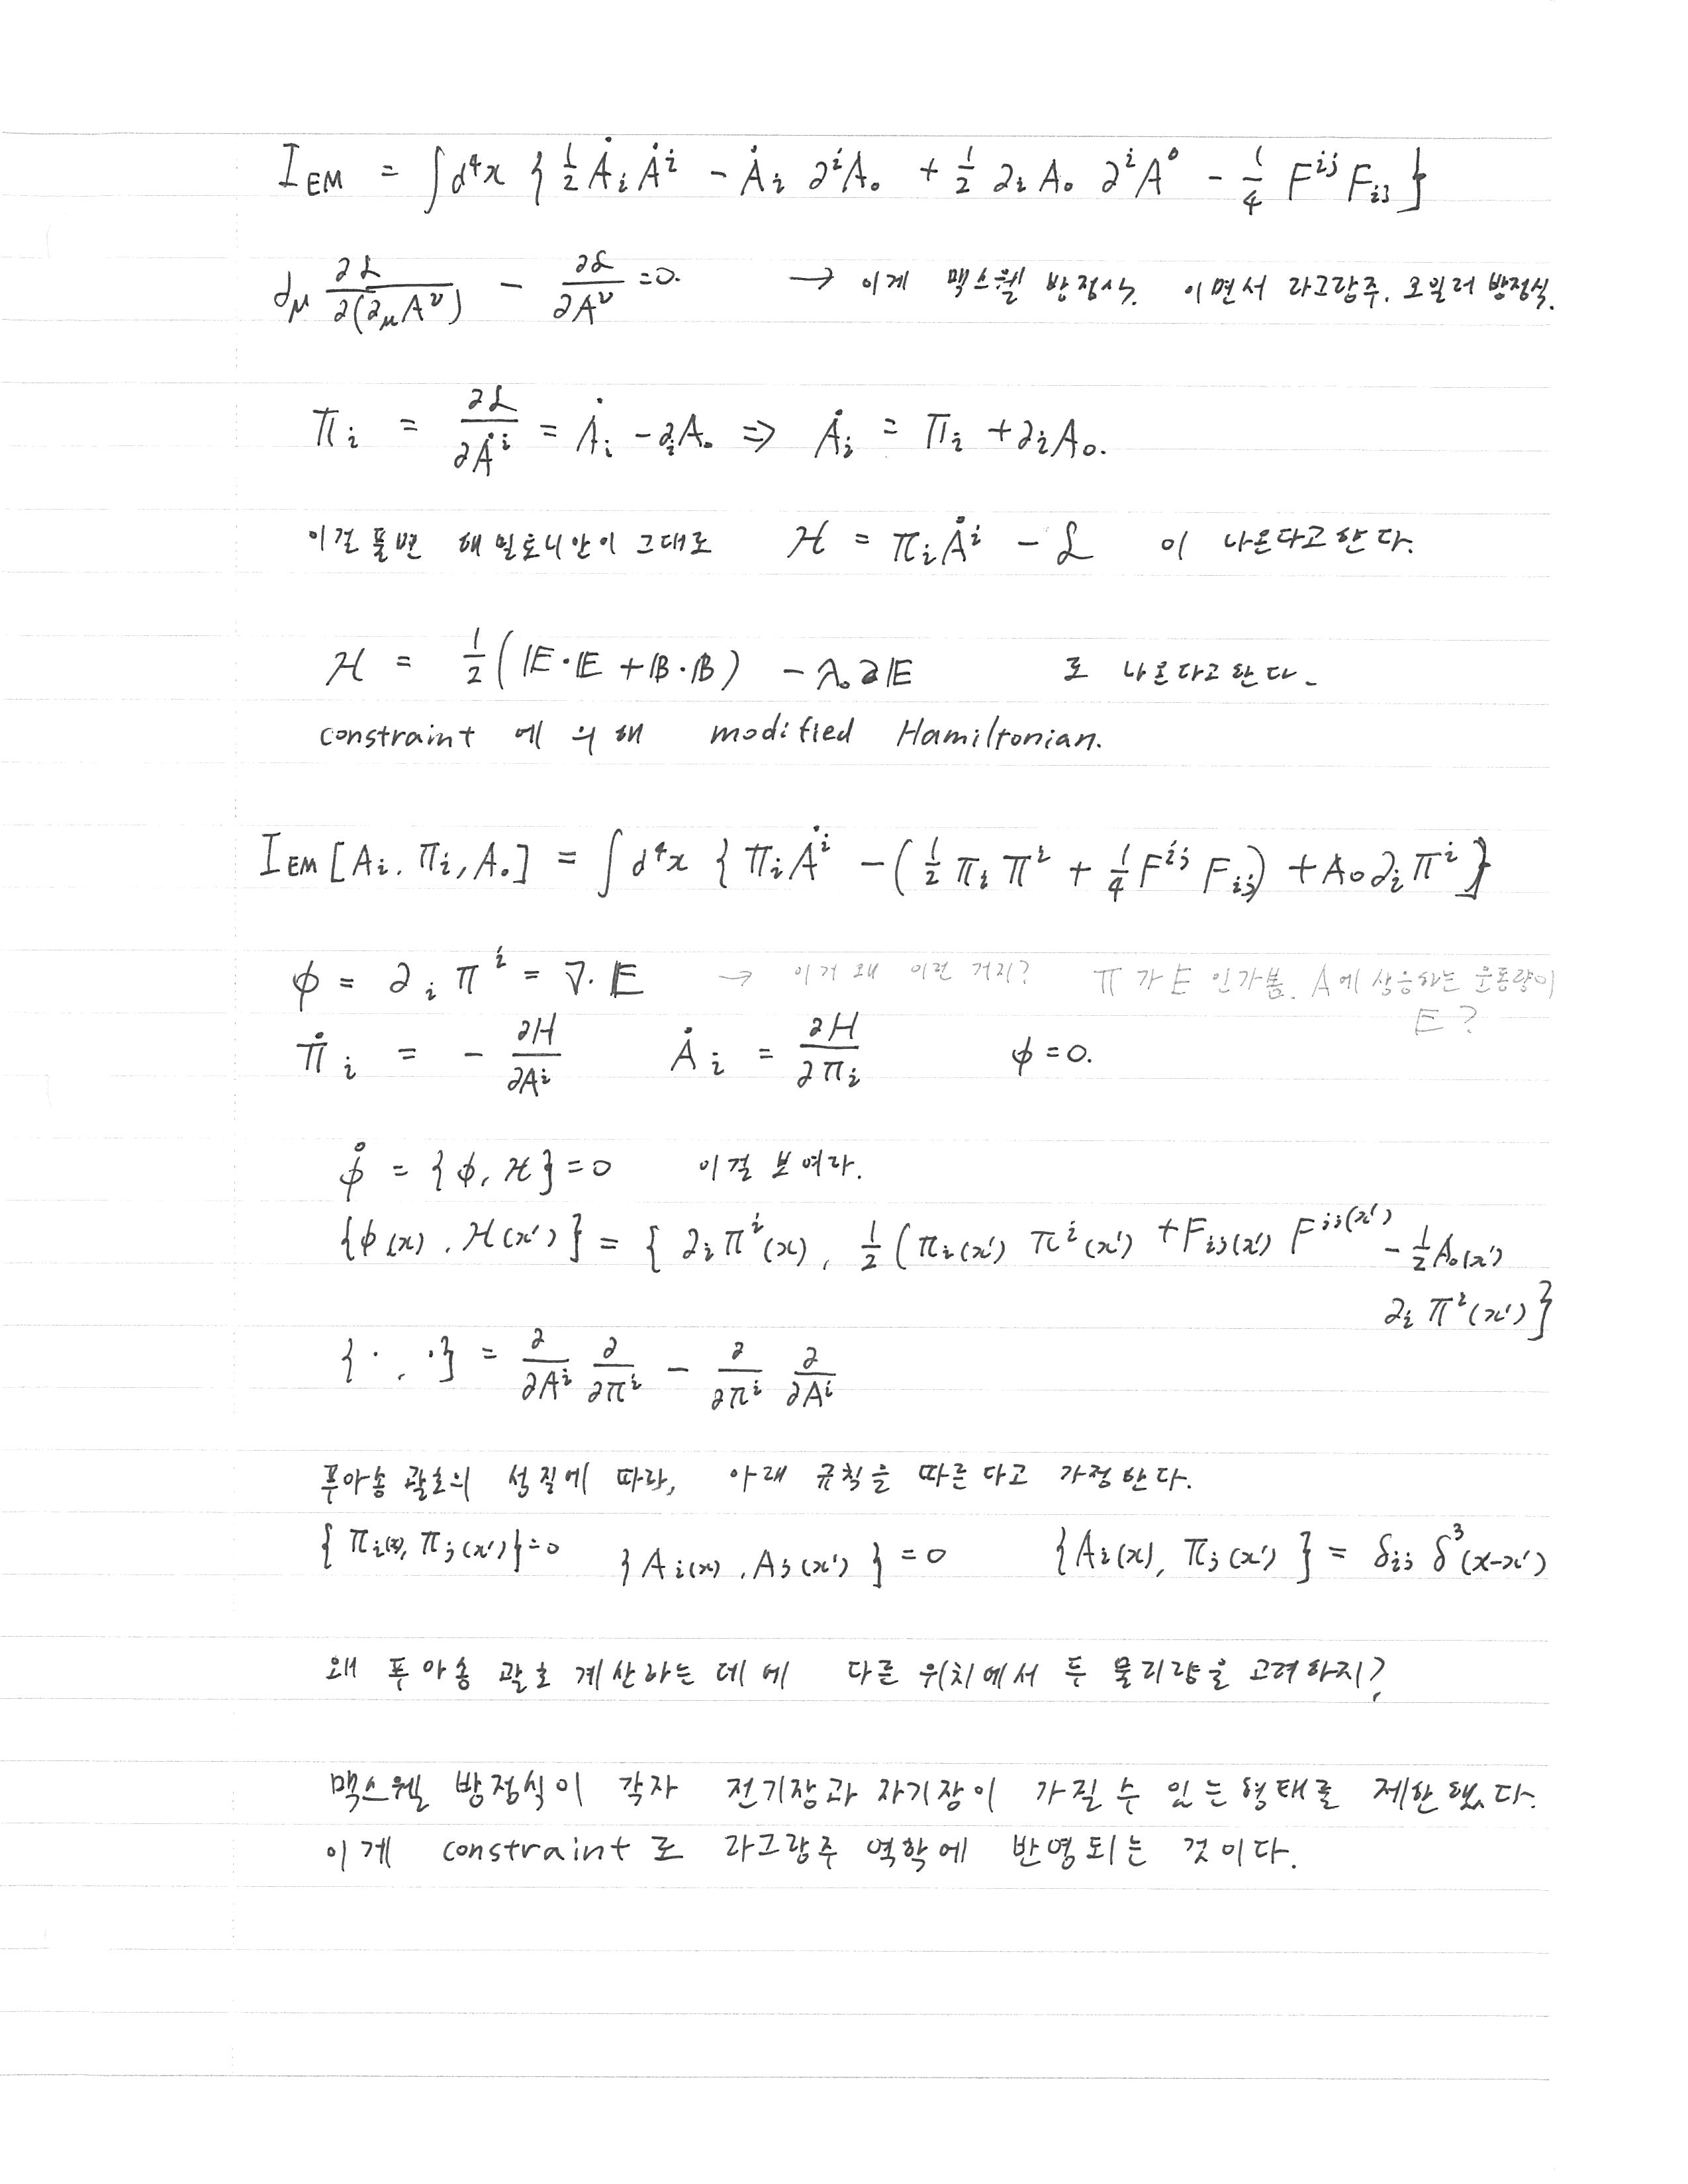 I_EM = ∫d⁴x { ½ Ȧ_i Ȧ^i - Ȧ_i ∂^i A_0 + ½ ∂_i A_0 ∂^i A^0 - ¼ F^{ij} F_{ij} }
∂_μ ∂ℒ/∂(∂_μ A^ν) - ∂ℒ/∂A^ν = 0. → 이게 맥스웰 방정식. 이면서 라그랑주. 오일러 방정식.
π_i = ∂ℒ/∂Ȧ^i = Ȧ_i - ∂_i A_0 ⇒ Ȧ_i = π_i + ∂_i A_0.
이걸 풀면 해밀토니안이 그대로 ℋ = π_i Ȧ^i - ℒ 이 나온다고 한다.
ℋ = ½(𝔼·𝔼 + 𝔹·𝔹) - A_0 ∂𝔼 로 나온다고 한다.
constraint 에 의해 modified Hamiltonian.
I_EM [A_i, π_i, A_0] = ∫d⁴x { π_i Ȧ^i - (½ π_i π^i + ¼ F^{ij} F_{ij}) + A_0 ∂_i π^i }
φ = ∂_i π^i = ∇·𝔼 → 이거 왜 이런 거지? π가 E 인가봄. A에 상응하는 운동량이
E?
π̇_i = - ∂H/∂A^i Ȧ_i = ∂H/∂π_i φ = 0.
φ̇ = {φ, ℋ} = 0 이걸 보여라.
{φ(x), ℋ(x')} = { ∂_i π^i(x), ½(π_i(x') π^i(x') + F_{ij}(x') F^{ij}(x') - ½ A_0(x')
∂_i π^i(x') }
{·, ·} = ∂/∂A^i ∂/∂π^i - ∂/∂π^i ∂/∂A^i
푸아송 괄호의 성질에 따라, 아래 규칙을 따른다고 가정한다.
{π_i(x), π_j(x')} = 0 {A_i(x), A_j(x')} = 0 {A_i(x), π_j(x')} = δ_{ij} δ³(x-x')
왜 푸아송 괄호 계산하는 데에 다른 위치에서 두 물리량을 고려하지?
맥스웰 방정식이 각자 전기장과 자기장이 가질 수 있는 형태를 제한했다.
이게 constraint로 라그랑주 역학에 반영되는 것이다.